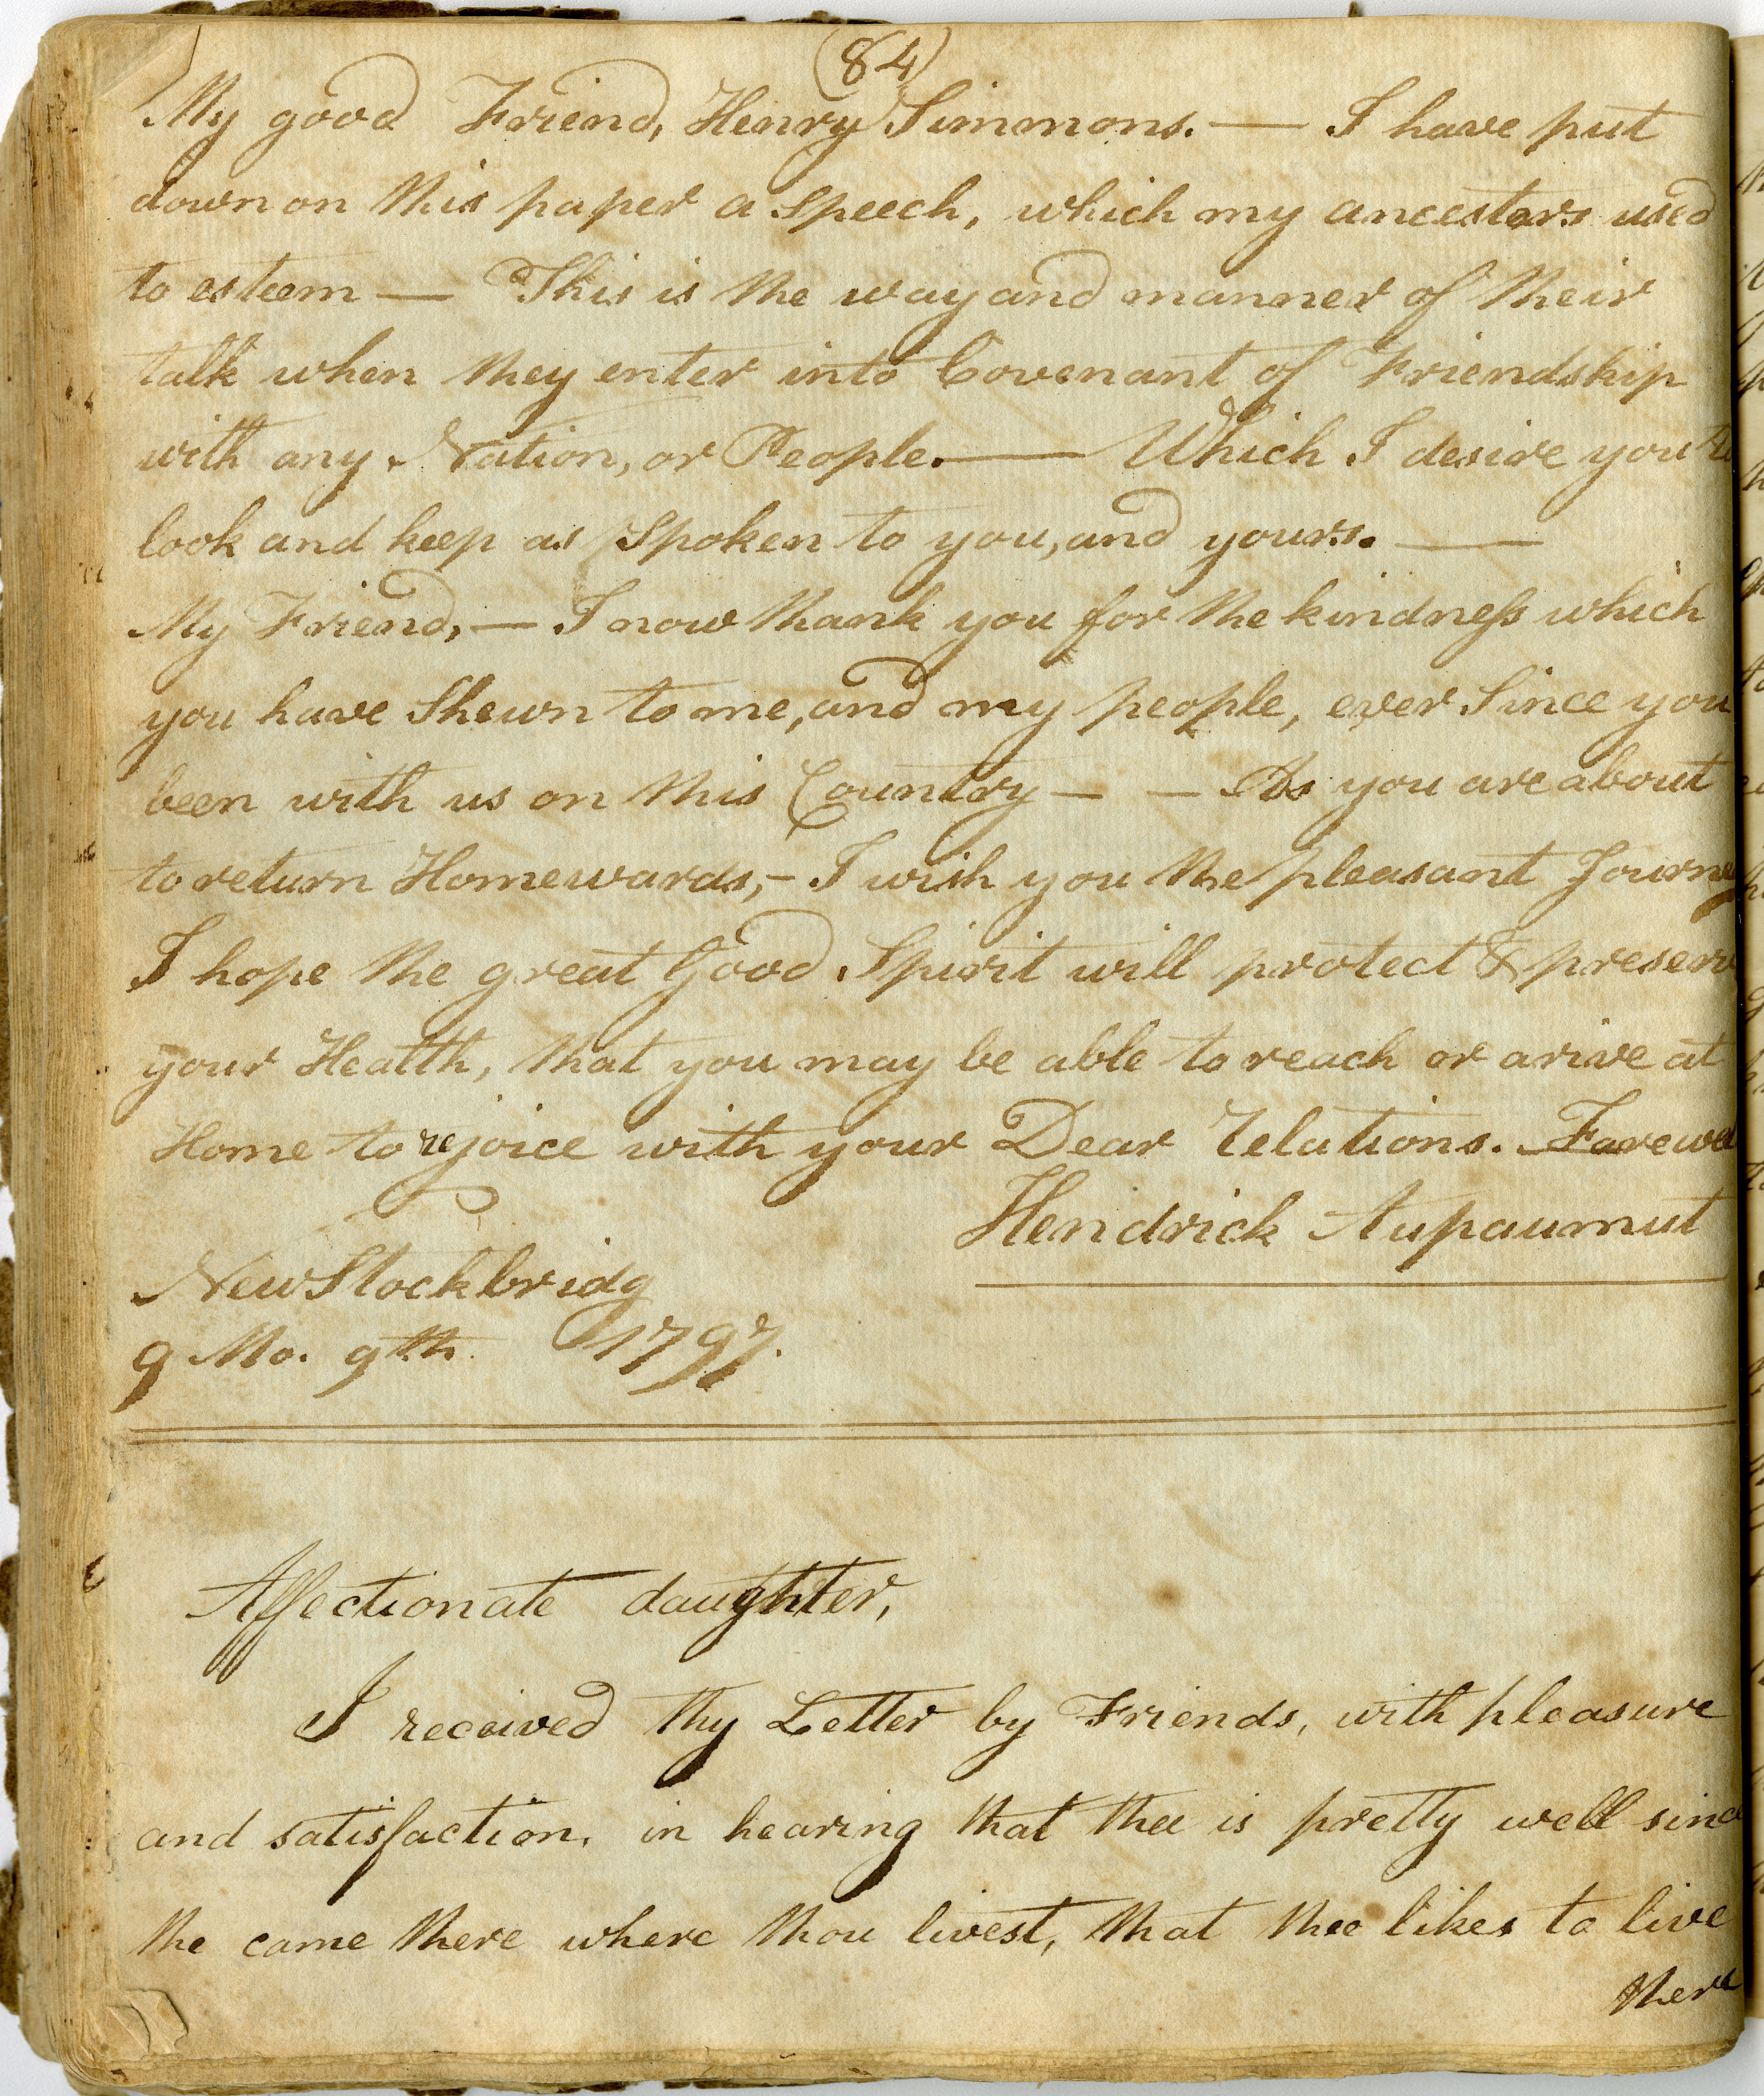 (84)
My good Friend, Henry Simmons. — I have put
down on this paper a Speech, which my ancestors used
to esteem — This is the way and manner of their
talk when they enter into Covenant of Friendship
with any Nation, or People. — Which I desire you to
look and keep as Spoken to you, and yours. —
My Friend, — I now thank you for the kindness which
you have Shewn to me, and my people, ever Since you
been with us on this Country — — As you are about
to return Homewards, – I wish you the pleasant Journey
I hope the great Good Spirit will protect & preserv
your Health, that you may be able to reach or arive at
Home to rejoice with your Dear relations. Farewel
Hendrick Aupaumut
New Stockbridg
9 Mo. 9th. 1797.
Affectionate daughter,
I received thy Letter by Friends, with pleasure
and satisfaction, in hearing that thee is pretty well since
the came there where thou livest, that thee likes to live
there